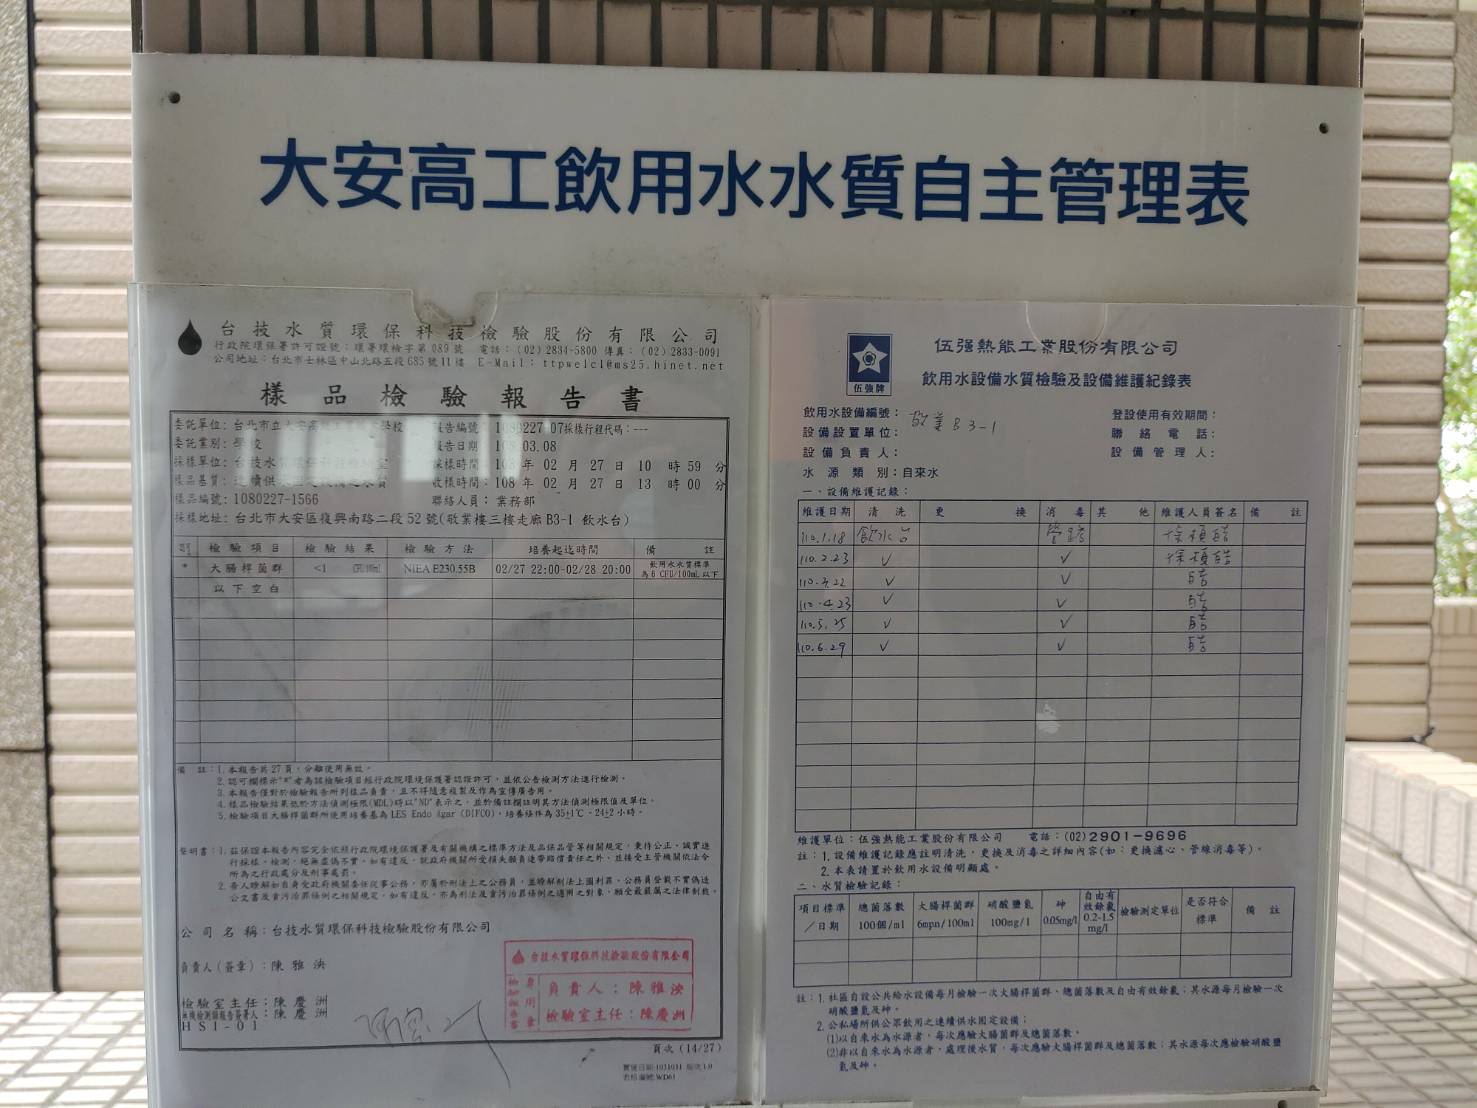 大安高工飲用水水質自主管理表
台技水質環保科技檢驗股份有限公司
行政院環保署許可證號：環署環檢字第089號 電話：(02)2834-5800 傳真：(02)2833-0091
公司地址：台北市士林區中山北路五段685號11樓 E-Mail：ttpwelcl@ms25.hinet.net
樣品檢驗報告書
委託單位：台北市立大安高 學校 報告編號 1080227 07採樣行程代碼：---
委託業別：學校 報告日期 108.03.08
採樣單位：台技水質環保科技檢驗室 採樣時間：108年02月27日10時59分
樣品基質：連續供 水質 收樣時間：108年02月27日13時00分
樣品編號：1080227-1566 聯絡人員：業務部
採樣地址：台北市大安區復興南路二段52號(敬業樓三樓走廊B3-1飲水台)
檢驗項目 檢驗結果 檢驗方法 培養起迄時間 備註
* 大腸桿菌群 <1 CFU/100ml NIEA E230.55B 02/27 22:00-02/28 20:00 飲用水水質標準為6 CFU/100mL以下
以下空白
備註：1.本報告共27頁，分離使用無效。
2.認可欄標示"*"者為該檢驗項目經行政院環境保護署認證許可，並依公告檢測方法進行檢測。
3.本報告僅對於檢驗報告所列樣品負責，且不得隨意複製及作為宣傳廣告用。
4.樣品檢驗結果低於方法偵測極限(MDL)時以"ND"表示之，並於備註欄註明其方法偵測極限值及單位。
5.檢驗項目大腸桿菌群所使用培養基為LES Endo Agar (DIFCO)，培養條件為35±1℃、24±2小時。
聲明書：1.茲保證本報告內容完全依照行政院環境保護署及有關機構之標準方法及品保品管等相關規定，秉持公正、誠實進
行採樣、檢測，絕無虛偽不實，如有違反，就政府機關所受損失願負連帶賠償責任之外，並接受主管機關依法令
所為之行政處分及刑事處罰。
2.吾人瞭解如自身受政府機關委任從事公務，亦屬於刑法上之公務員，並瞭解刑法上圖利罪、公務員登載不實偽造
公文書及貪污治罪條例之相關規定，如有違反，亦為刑法及貪污治罪條例之適用之對象，願受最嚴厲之法律制裁。
公司名稱：台技水質環保科技檢驗股份有限公司
負責人(簽章)：陳雅泱
檢驗室主任：陳慶洲
無機檢測類報告簽署人：陳慶洲
HSI-01
台技水質環保科技檢驗股份有限公司
負責人：陳雅泱
檢驗室主任：陳慶洲
頁次(14/27)
伍強牌
伍强熱能工業股份有限公司
飲用水設備水質檢驗及設備維護紀錄表
飲用水設備編號：敬業B3-1 登設使用有效期間：
設備設置單位： 聯絡電話：
設備負責人： 設備管理人：
水源類別：自來水
一、設備維護記錄：
維護日期 清洗 更換 消毒 其他 維護人員簽名 備註
110.1.18 飲水台 管路
110.2.23 ✓ ✓
110.3.22 ✓ ✓
110.4.23 ✓ ✓
110.5.25 ✓ ✓
110.6.29 ✓ ✓
維護單位：伍強熱能工業股份有限公司 電話：(02)2901-9696
註：1.設備維護記錄應註明清洗、更換及消毒之詳細內容(如：更換濾心、管線消毒等)。
2.本表請置於飲用水設備明顯處。
二、水質檢驗記錄：
項目標準／日期 總菌落數100個/ml 大腸桿菌群6mpn/100ml 硝酸鹽氮100mg/l 砷0.05mg/l 自由有效餘氯0.2-1.5mg/l 檢驗測定單位 是否符合標準 備註
註：1.社區自設公共給水設備每月檢驗一次大腸桿菌群、總菌落數及自由有效餘氯；其水源每月檢驗一次
硝酸鹽氮及砷。
2.公私場所供公眾飲用之連續供水固定設備：
(1)以自來水為水源者，每次應驗大腸菌群及總菌落數。
(2)非以自來水為水源者，處理後水質，每次應驗大腸桿菌群及總菌落數；其水源每次應檢驗硝酸鹽
氮及砷。